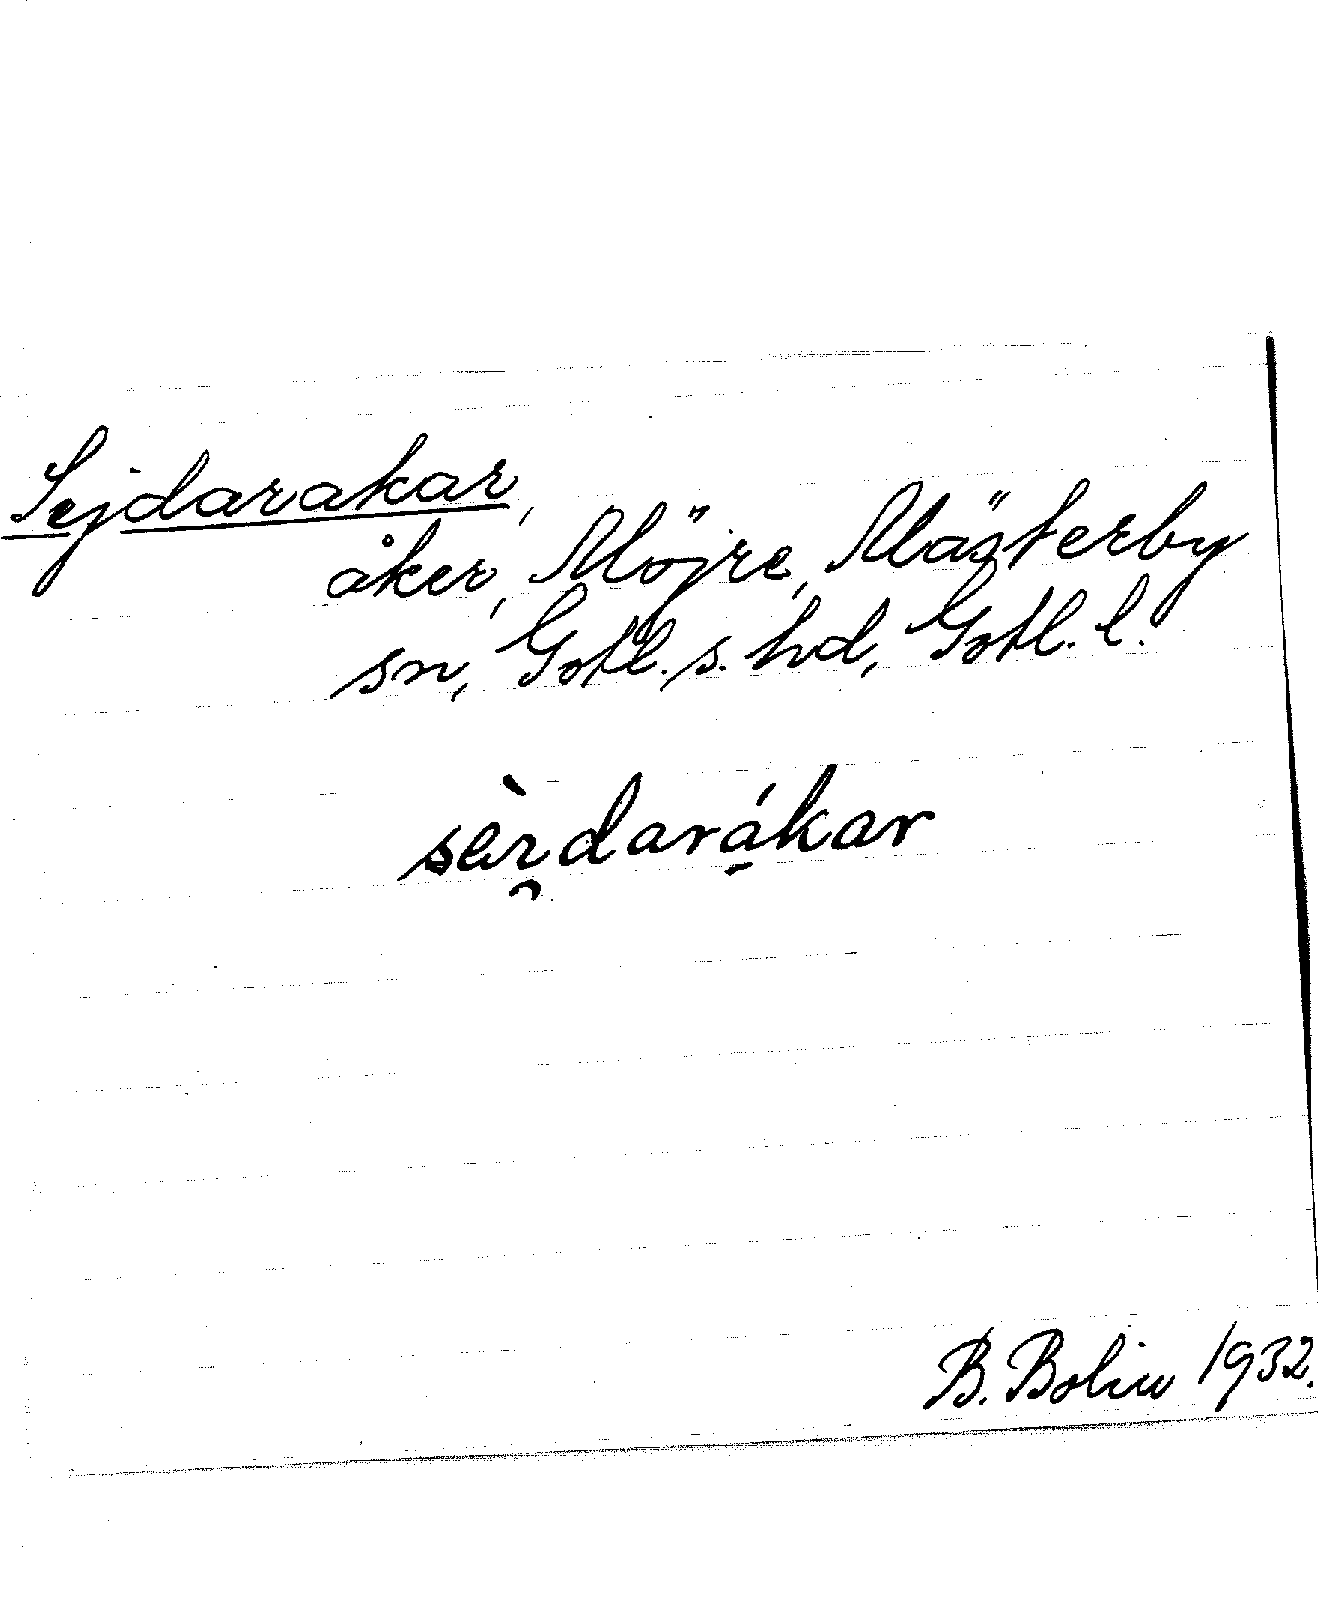 Sejdarakar,
åker, Möjre, Mästerby
sn, Gotl. s. hd, Gotl. l.
sèi̯dará̱kar
B. Bolin 1932.